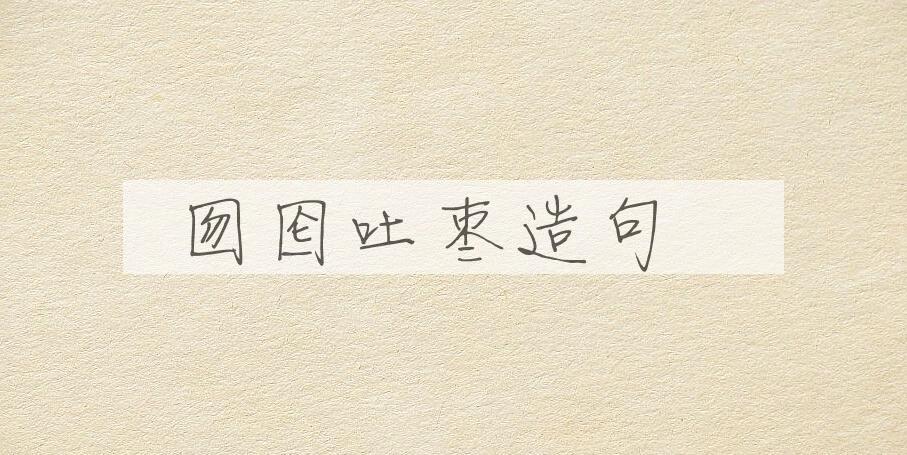 囫囵吐枣造句